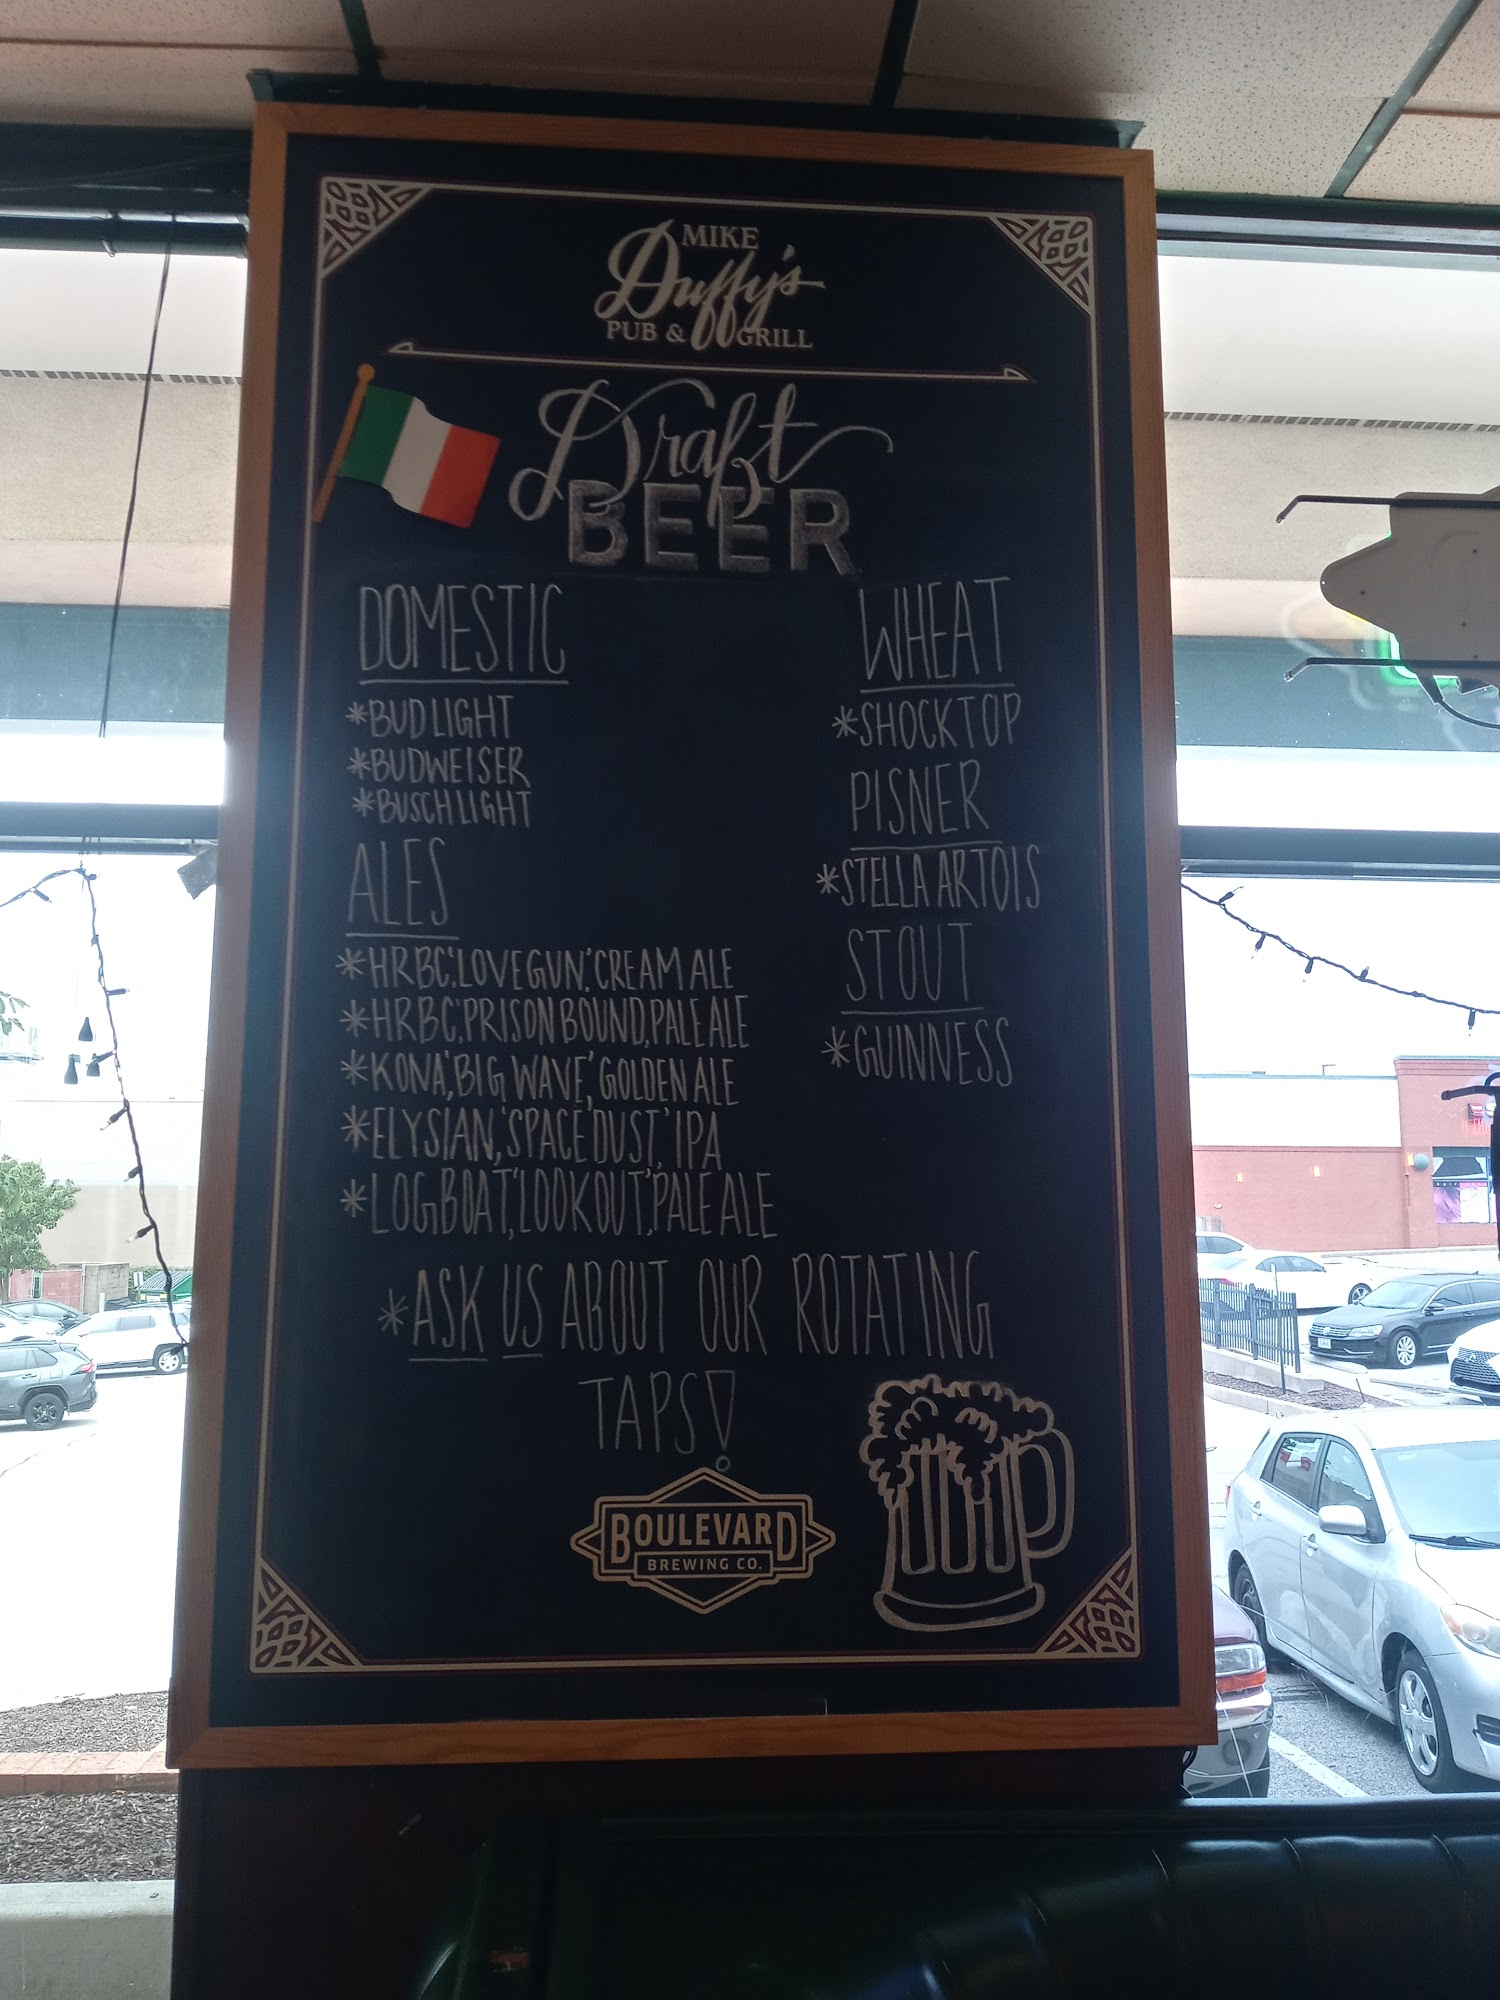 MIKE
Duffy's
PUB & GRILL
Draft
BEER
DOMESTIC
*BUD LIGHT
*BUDWEISER
*BUSCH LIGHT
ALES
*HRBC,'LOVE GUN,'CREAM ALE
*HRBC,'PRISON BOUND,'PALE ALE
*KONA,'BIG WAVE,'GOLDEN ALE
*ELYSIAN,'SPACE DUST,'IPA
*LOGBOAT,'LOOKOUT,'PALE ALE
WHEAT
*SHOCKTOP
PISNER
*STELLA ARTOIS
STOUT
*GUINNESS
*ASK US ABOUT OUR ROTATING
TAPS!
BOULEVARD
BREWING CO.